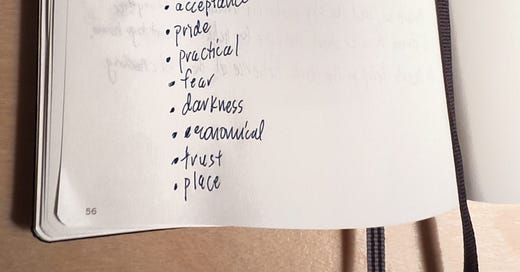 • acceptance
• pride
• practical
• fear
• darkness
• economical
• trust
• place
56